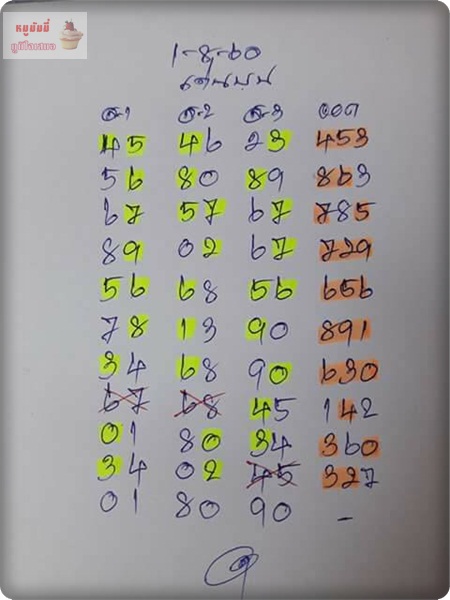 หมูมัมมี่
ภูมิใจเสนอ
1-8-60
เด่นบน
ส.1 ส.2 ส.3 ออก
45 46 23 453
56 80 89 863
67 57 67 785
89 02 67 729
56 68 56 656
78 13 90 891
34 68 90 630
67 68 45 142
01 80 34 360
34 02 45 327
01 80 90 -